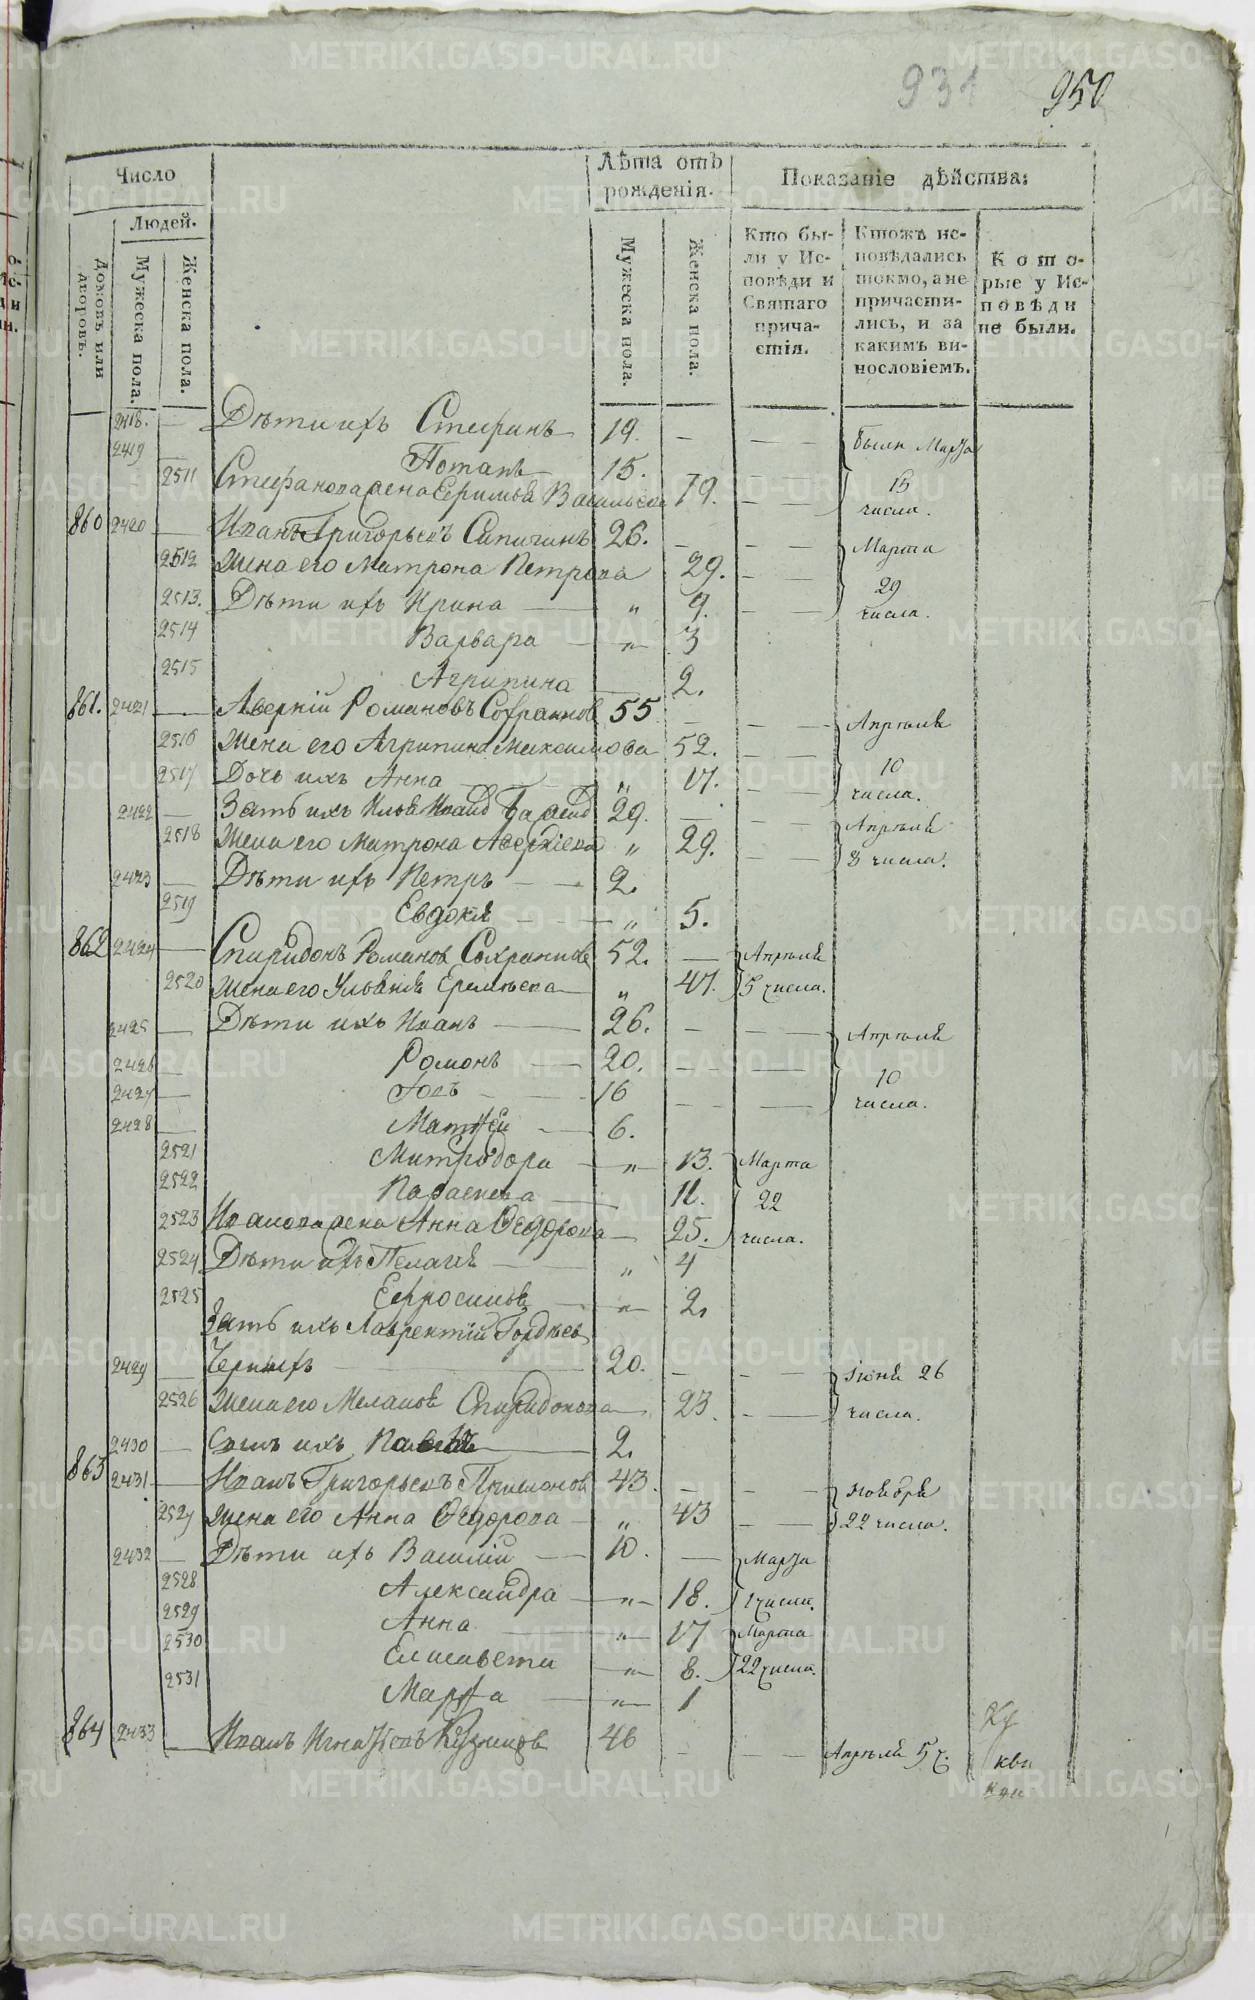 931 950
Число
Лѣта отъ рожденія.
Показаніе дѣйства:
Людей.
Домовъ или дворовъ.
Мужеска пола.
Женска пола.
Мужеска пола.
Женска пола.
Кто бы-
ли у Ис-
повѣди и
Святаго
прича-
стія.
Ктожъ ис-
повѣдались
токмо, а не
причасти-
лись, и за
какимъ ви-
нословіемъ.
Кото-
рые у Ис-
повѣди
не были.
2418. — Дѣти ихъ Стефанъ 19. — — были Марта
2419 — Потапъ 15. 15
2511 Стефанова жена Васильева 79. — числа.
860 2420 — Иванъ Григорьевъ 26. — — Марта
2512 Жена его Матрона Петрова 29. — 29
2513. Дѣти ихъ Ирина — „ 9. — числа.
2514 Варвара — „ 3
2515 Агрипина — 2.
861. 2421 — Аверкій Романовъ 55 — — Апрѣля
2516 Жена его Агрипина Максимова 52. — 10
2517 Дочь ихъ Анна „ 17. — числа.
2422 — Зять ихъ Илья 29. — Апрѣля
2518 Жена его Матрона Аверкіева „ 29. — 8 числа.
2423 — Дѣти ихъ Петръ — 2.
2519 Евдокія — „ 5.
862 2424 — Спиридонъ Романов 52. — Апрѣля
2520 Жена его Ульянія „ 47. 5 числа.
2425 — Дѣти ихъ Иванъ — 26. — — Апрѣля
2426 — Романъ — 20. — — 10
2427 — — 16 — — числа.
2428 — Матѳей — 6.
2521 Митродора — „ 13. Марта
2522 Параскева — 11. 22
2523 Иванова жена Анна Ѳедорова — 25. числа.
2524 Дѣти ихъ Пелагія — „ 4
2525 Ефросинья — „ 2.
Зять ихъ Лаврентій Гордѣев
2429 — Черныхъ — 20. — — Іюня 26
2526 Жена его Меланья Спиридонова — 23. — числа.
2430 — Сынъ ихъ — 2.
863 2431 — Иванъ Григорьевъ 43. — — Ноября
2527 Жена его Анна Ѳедорова — „ 43 — 22 числа.
2432 — Дѣти ихъ Василій — 10. — Марта
2528 Александра — „ 18. числа.
2529 Анна — „ 17 Марта
2530 Елисавета — „ 8. 22 числа.
2531 Марѳа — „ 1
864 2433 — Иванъ Кузнецов 46 — — Апрѣля 5 ч.
METRIKI.GASO-URAL.RU